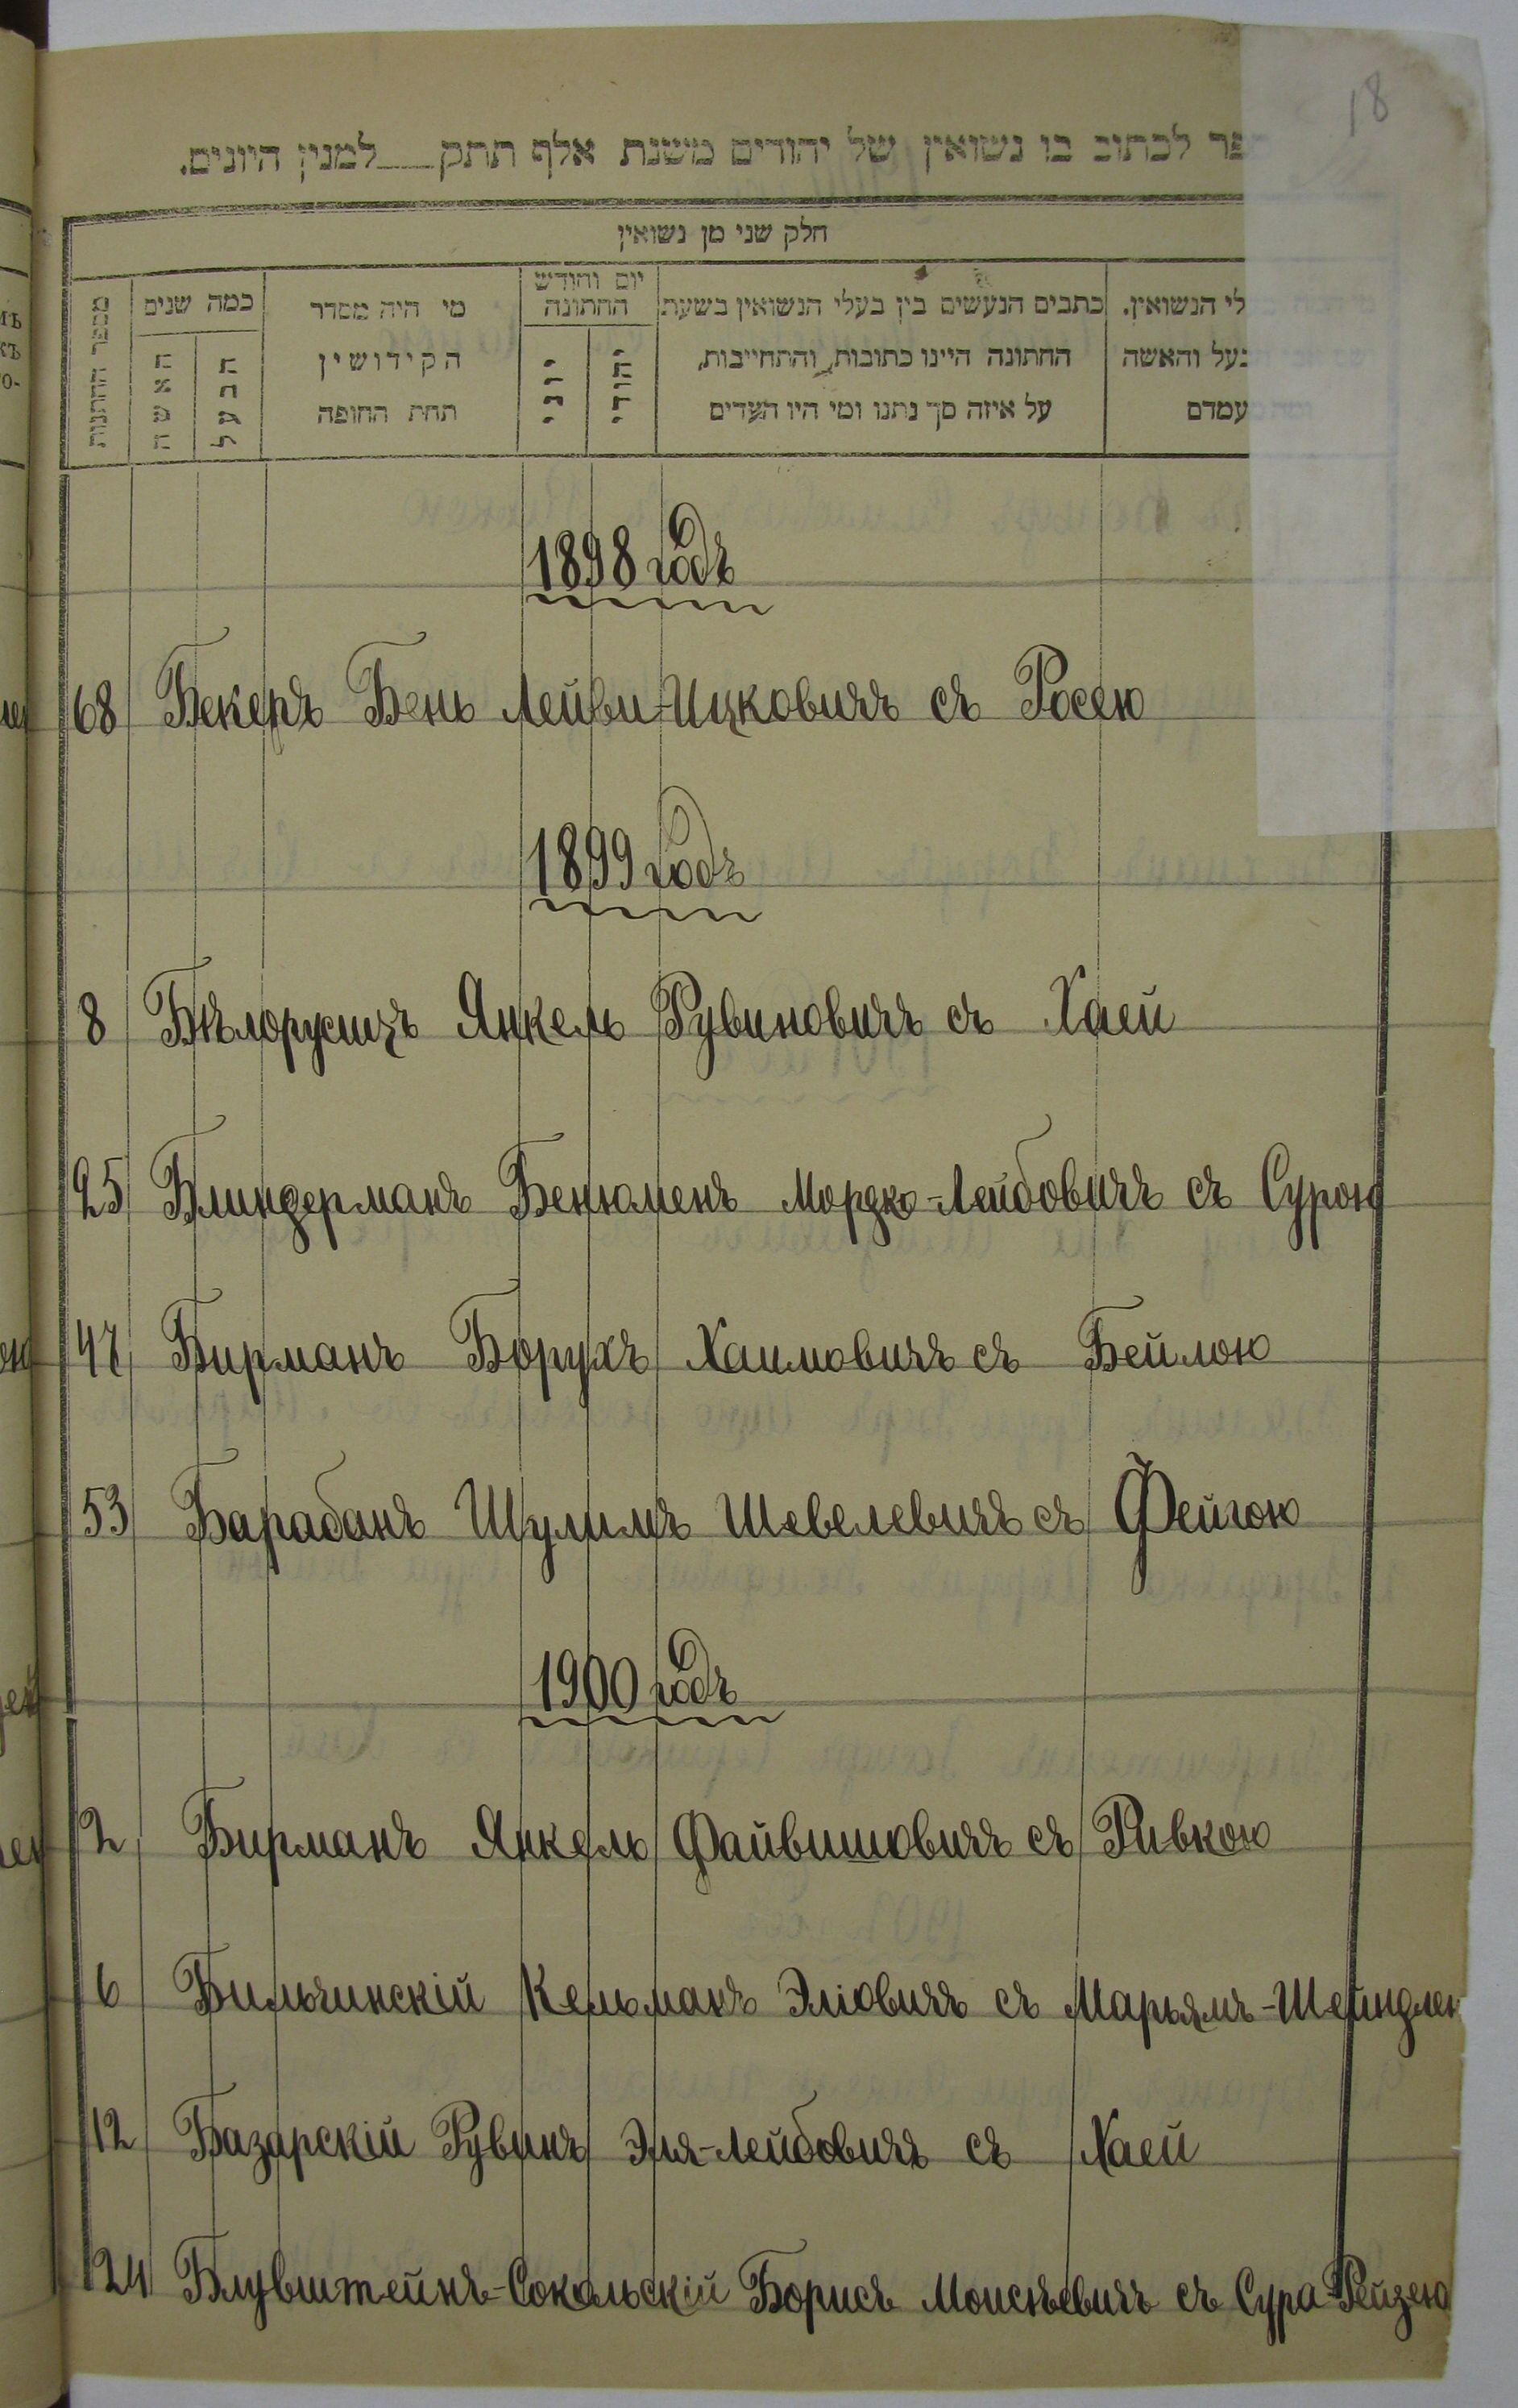 18
לכתוב בו נשואין של יהודים משנת אלף תתק____למנין היונים.
חלק שני מן נשואין
מספר החתונות
כמה שנים
האשה
הבעל
מי היה מסדר
הקידושין
תחת החופה
יום והודש
החתונה
יוני
יהודי
כתבים הנעשים בין בעלי הנשואין בשעת
החתונה היינו כתובות, והתחייבות,
על איזה סך נתנו ומי היו העדים
הנשואין.
והאשה
1898 годъ
68 Бекеръ Бень Лейви-Ицковичъ съ Росею
1899 годъ
8 Бѣлорусицъ Янкель Рувиновичъ съ Хаей
25 Блиндерманъ Бенюменъ Мордко-Лейбовичъ съ Сурою
47 Бирманъ Борухъ Хаимовичъ съ Бейлою
53 Барабанъ Шулимъ Шевелевичъ съ Фейгою
1900 годъ
2 Бирманъ Янкель Файвишовичъ съ Ривкою
6 Бильчинскій Кельманъ Эліовичъ съ Марьямъ-Шейндлею
12 Базарскій Рувинъ Эля-Лейбовичъ съ Хаей
24 Блувштейнъ-Сокольскій Борисъ Моисѣевичъ съ Сура-Рейзею